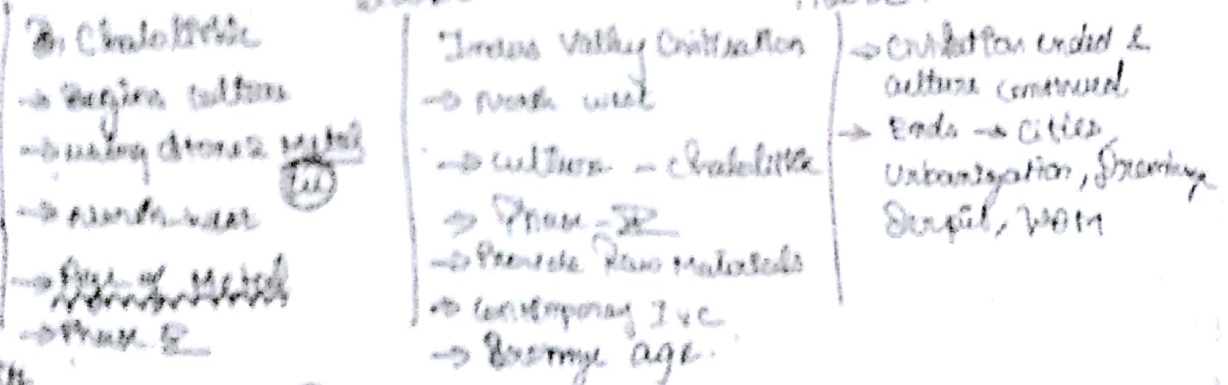 Chalolithic
→ Begins culture
→ using stones metal
Cu
→ North west
→ Age of Metal
→ Phase I
Indus Valley Civilisation
→ North west
→ culture - Chalolithic
→ Phase - II
→ Provide Raw Materials
→ Contemporary IVC
→ Bronze age.
→ Civilisation ended &
culture continued
→ Ends → Cities,
Urbanization,
Script,